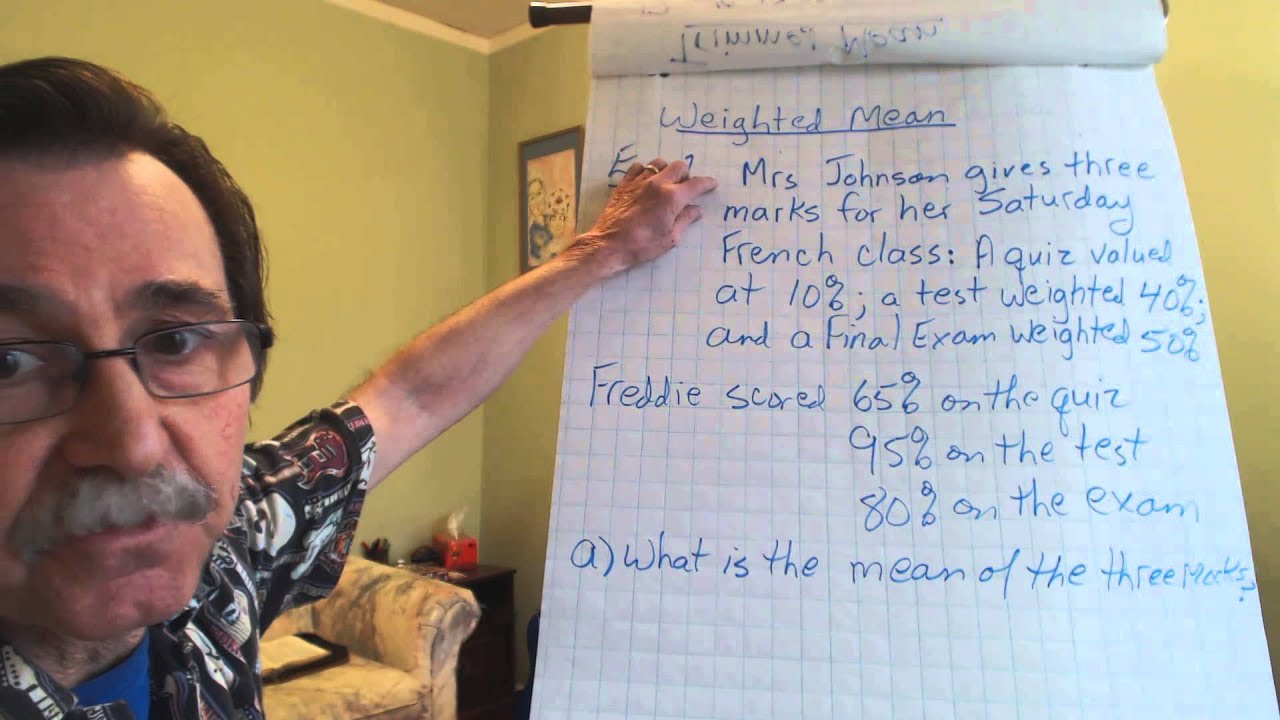 Weighted Mean
Mrs Johnson gives three
marks for her Saturday
French class: A quiz valued
at 10%; a test weighted 40%;
and a Final Exam weighted 50%
Freddie scored 65% on the quiz
95% on the test
80% on the exam
a) What is the mean of the three Marks?